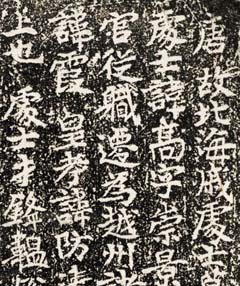 唐故北海戚處士
處士諱高字崇景
官從職遷為越州
諱霞 皇考諱防
上也 處士才鋒韞